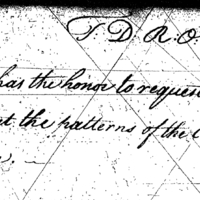 T. D. R. O.
has the honor to request
t the patterns of the